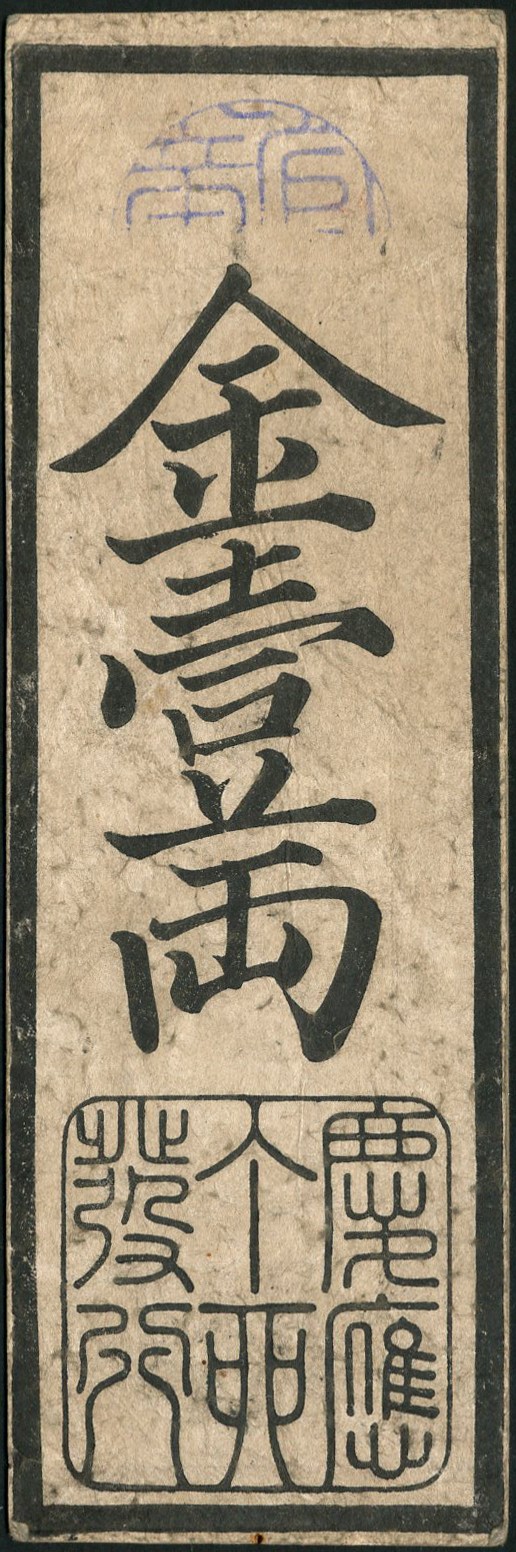 金壹両
慶應
丁卯
發行